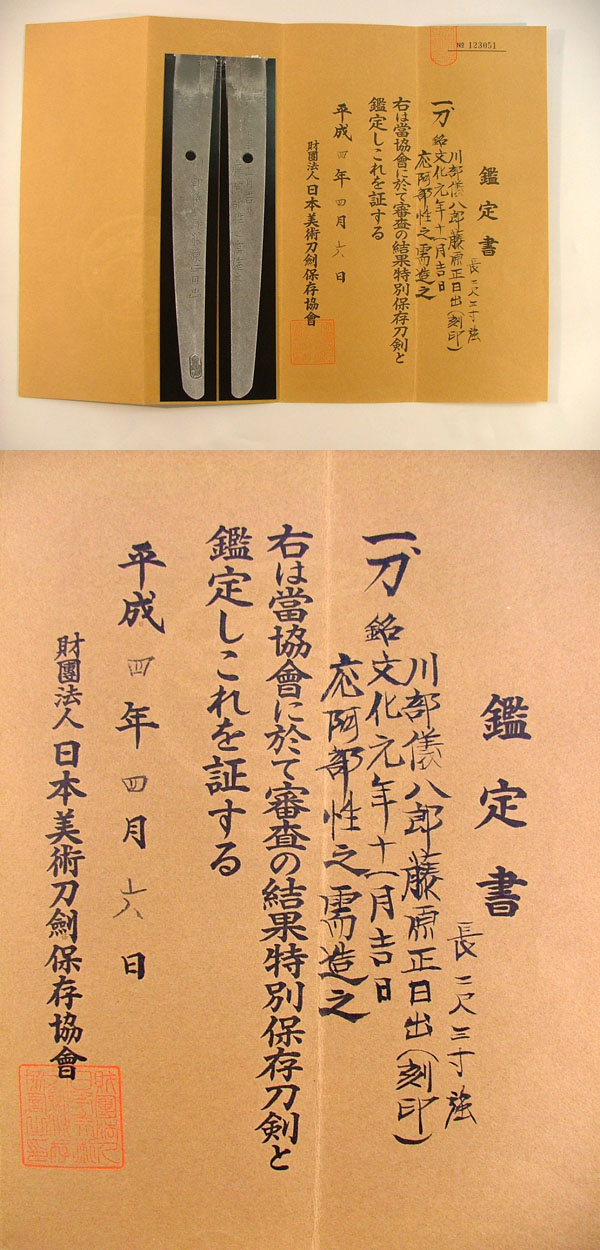 № 123051
鑑定書
長二尺三寸強
一刀 銘 川部儀八郎藤原正日出(刻印)
文化元年十一月吉日
応阿部性之需造之
右は當協會に於て審査の結果特別保存刀剣と
鑑定しこれを証する
平成四年四月六日
財團法人日本美術刀劍保存協會
鑑定書
長二尺三寸強
一刀 銘 川部儀八郎藤原正日出(刻印)
文化元年十一月吉日
応阿部性之需造之
右は當協會に於て審査の結果特別保存刀剣と
鑑定しこれを証する
平成四年四月六日
財團法人日本美術刀劍保存協會